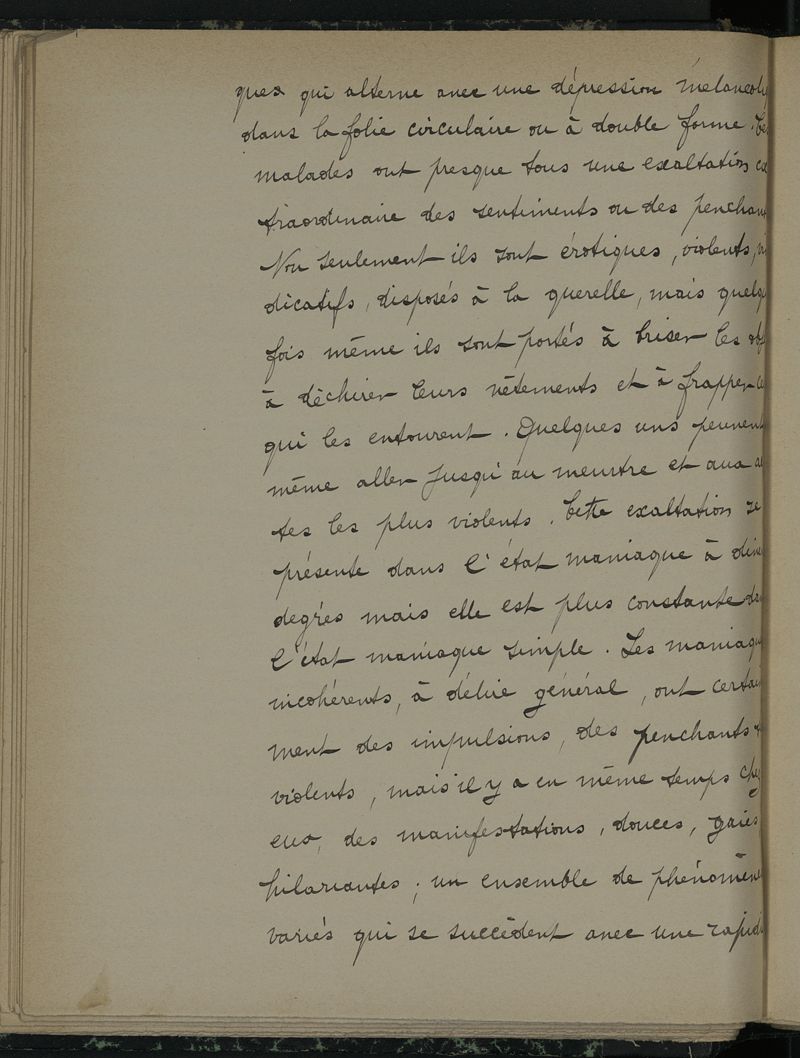 ques qui alterne avec une dépression mélancoli
dans la folie circulaire ou à double forme. Ces
malades ont presque tous une exaltation ex
traordinaire des sentiments ou des penchant
Non seulement ils sont érotiques, violents, vi
dicatifs, disposés à la querelle, mais quelqu
fois même ils sont portés à briser les obj
à déchirer leurs vêtements et à frapper ce
qui les entourent. Quelques uns peuvent
même aller jusqu'au meurtre et aux ac
tes les plus violents. Cette exaltation se
présente dans l'état maniaque à dive
degrés mais elle est plus constante da
l'état maniaque simple. Les maniaqu
incohérents, à délire général, ont certain
ment des impulsions, des penchants
violents, mais il y a en même temps chez
eux, des manifestations, douces, gaies,
hilariantes ; un ensemble de phénomène
variés qui se succèdent avec une rapidi